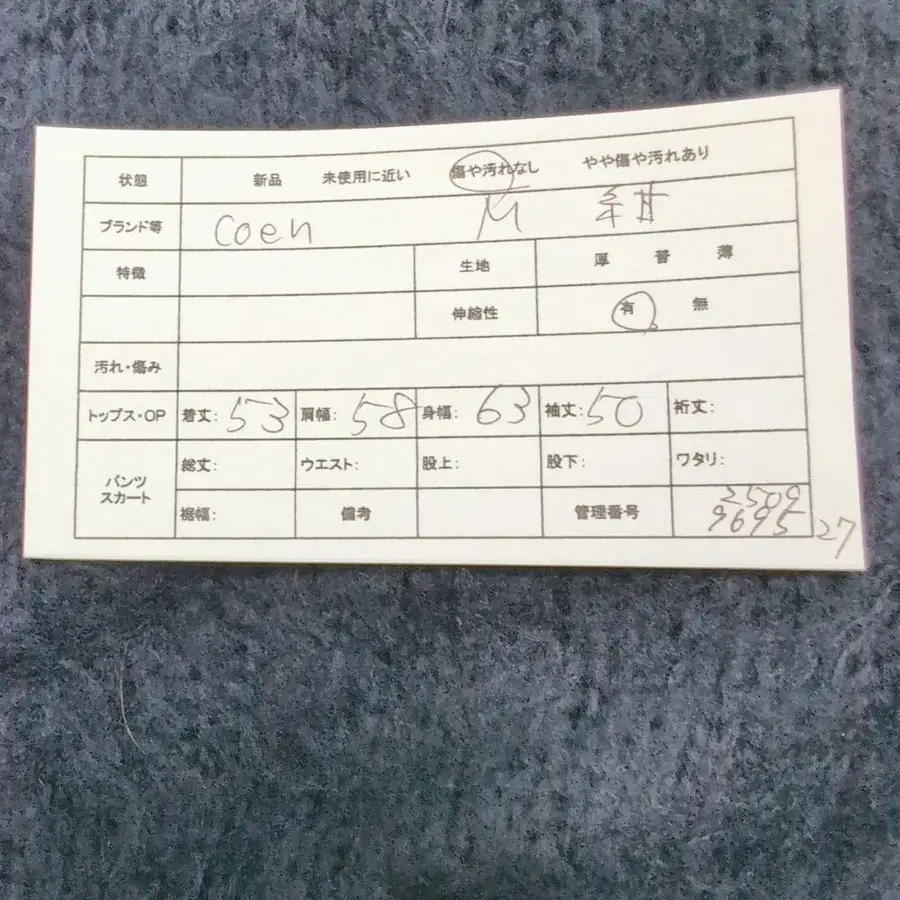 状態 新品 未使用に近い 傷や汚れなし やや傷や汚れあり
ブランド等 coen M 紺
特徴 生地 厚 普 薄
伸縮性 有 無
汚れ・傷み
トップス・OP 着丈: 53 肩幅: 58 身幅: 63 袖丈: 50 裄丈:
パンツ スカート 総丈: ウエスト: 股上: 股下: ワタリ:
裾幅: 備考 管理番号 2509
9695 27